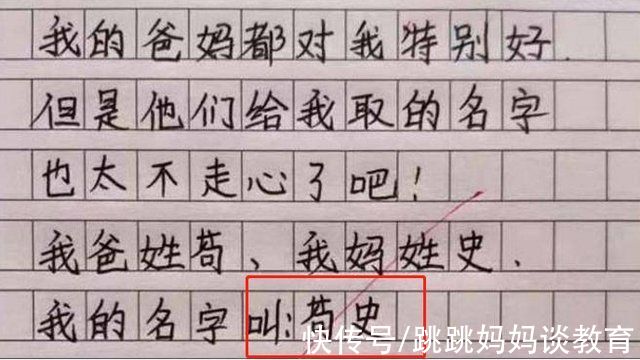 我的爸妈都对我特别好.
但是他们给我取的名字
也太不走心了吧!
我爸姓苟、我妈姓史.
我的名字叫:苟史
快传号/跳跳妈妈谈教育